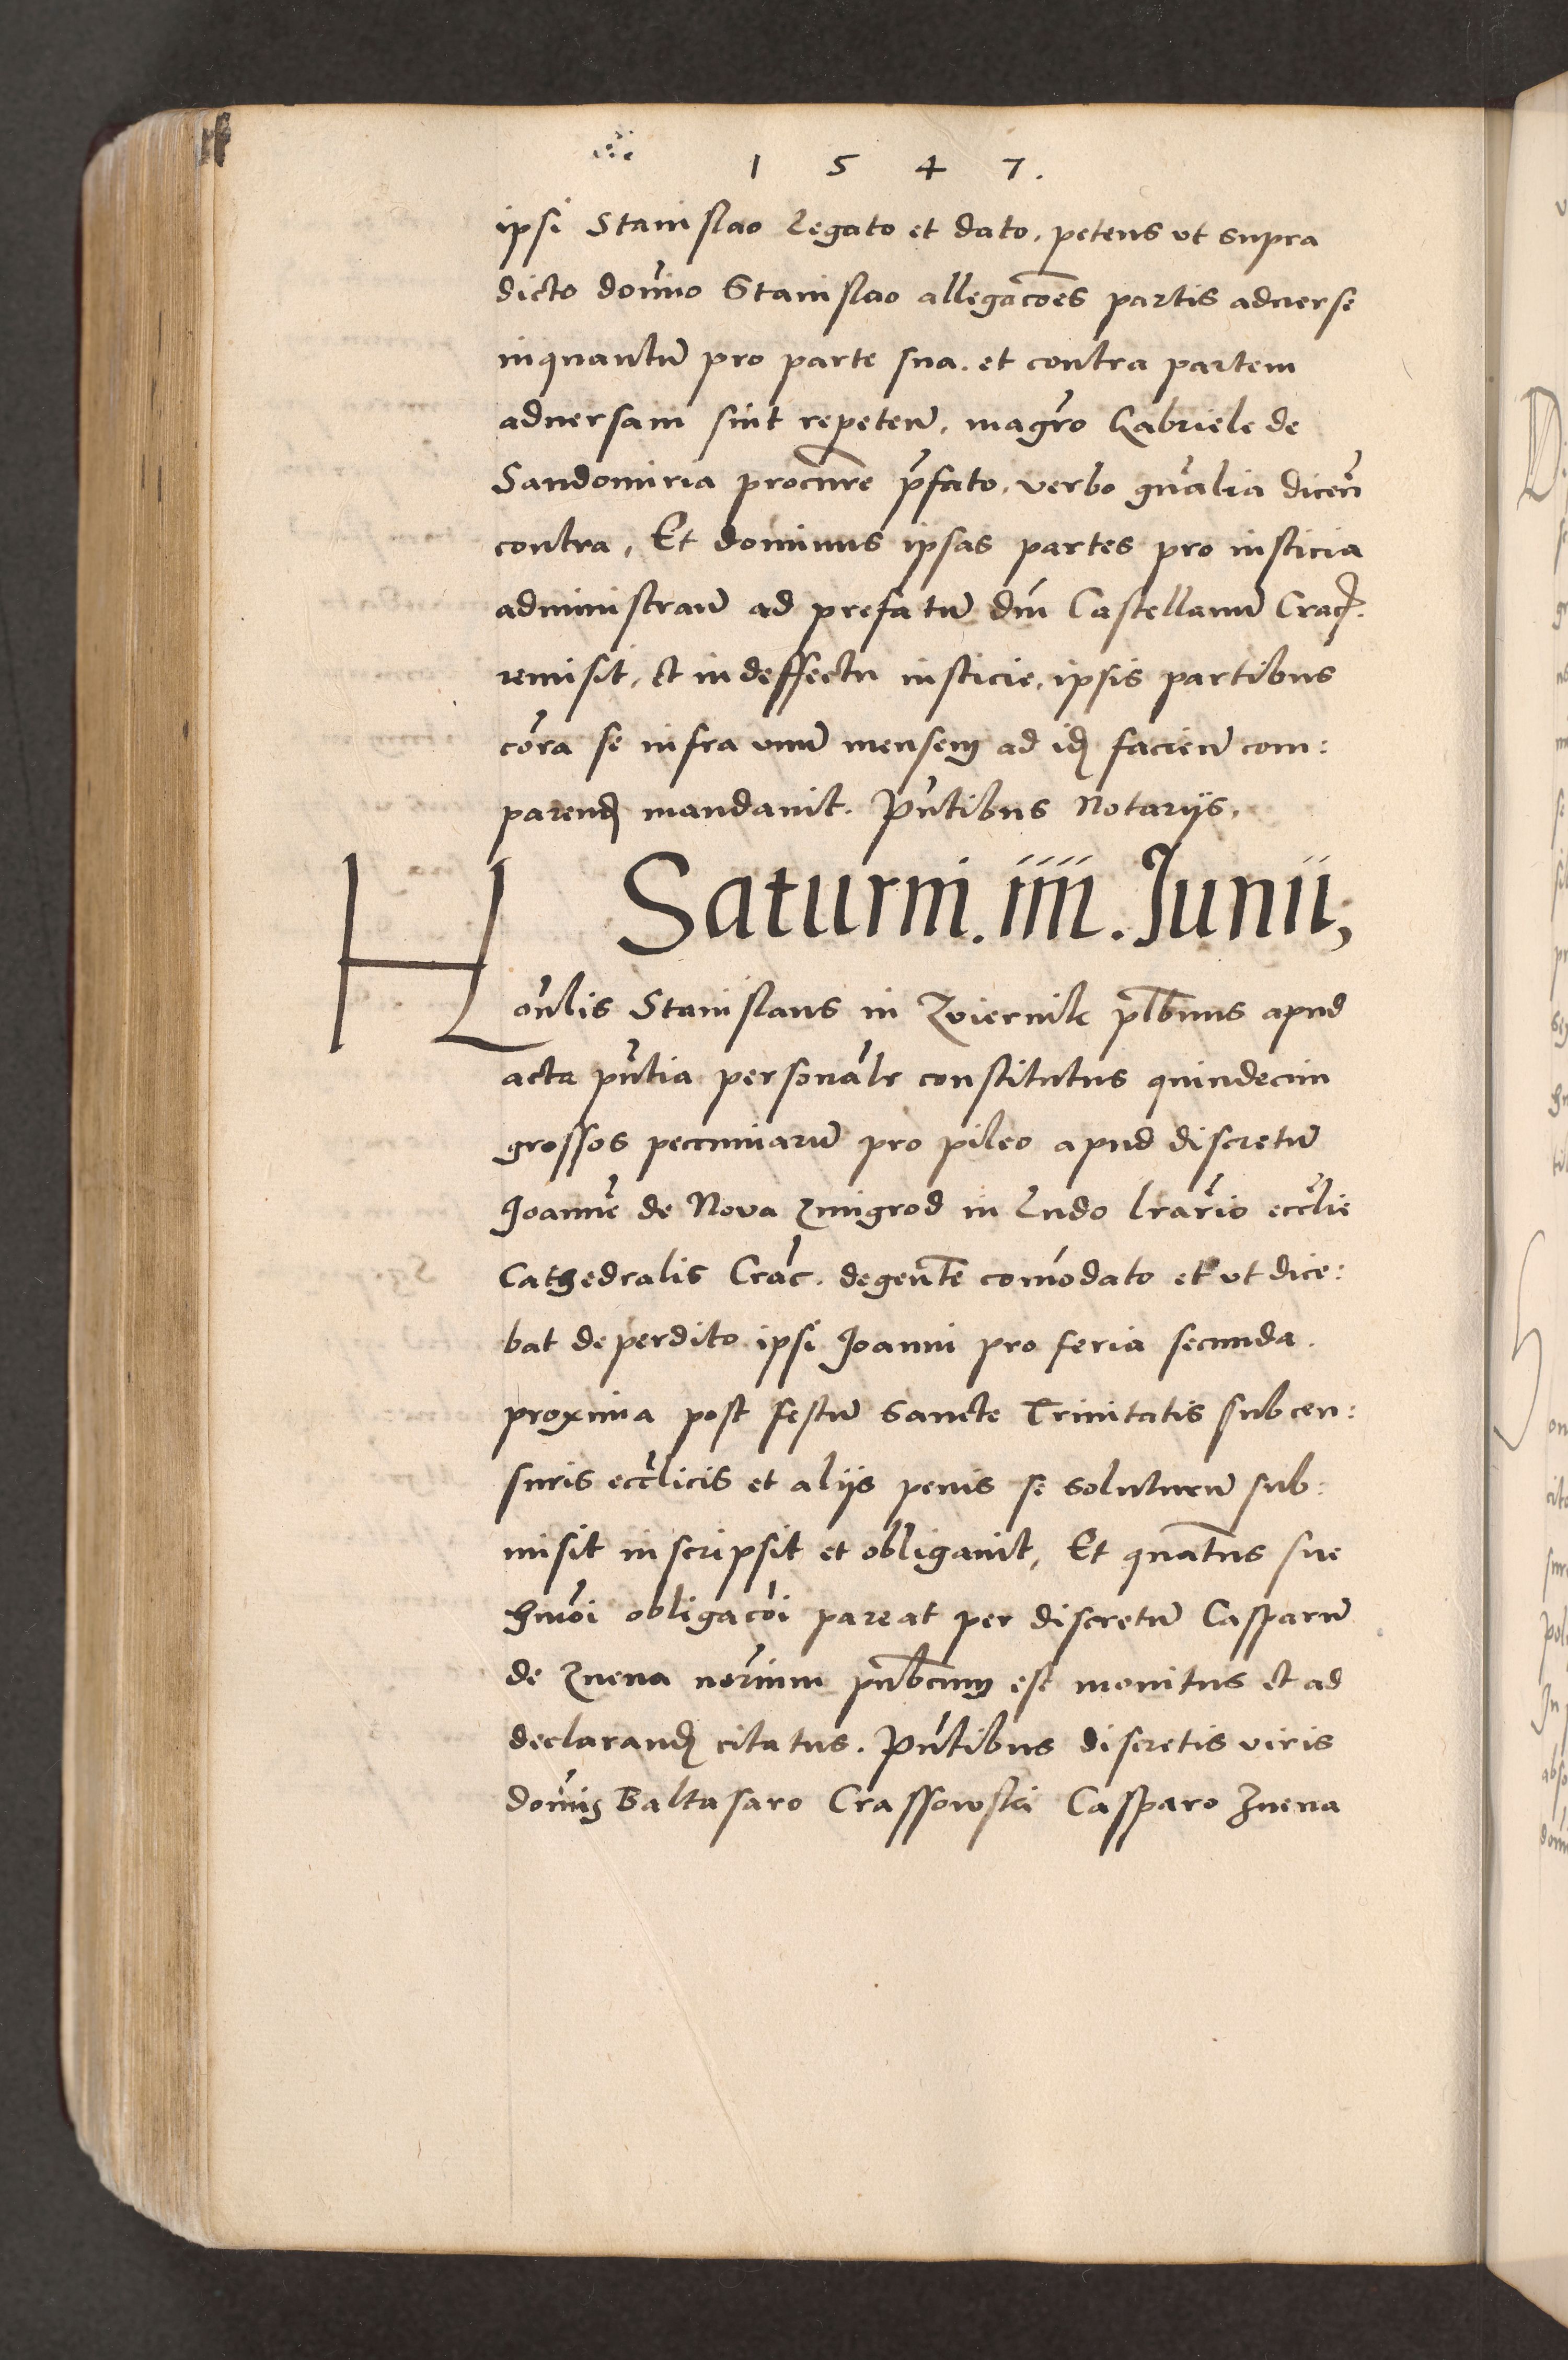 1 5 4 7.
ipsi Stanislao legato et dato, petens ut supra
dicto domino Stanislao allegac̃oes partis aduerse
inquantũ pro parte sua. et contra partem
aduersam sint repeteñ, magr̃o Gabriele de
Sandomiria procur̃e p̃fato, verbo gñalia diceñ
contra, Et dominus ipsas partes pro iusticia
administrañ ad prefatũ dñm Castellanũ Crac̃.
remisit, et in deffectu iusticie, ipsis partibus
cor̃a se infra unũ mensem ad id facieñ com:
parend mandauit. Pñtibus Notarijs.
Saturni. iiii. Junii,
Hoñlis Stanislaus in Zwiernik plb̃nus apud
acta pñtia personal̃r constitutus quindecim
grossos pecuniarũ pro pileo apud discretũ
Joannẽ de Nova Zmigrod in Ludo lr̃ario eccl̃ie
Cathedralis Crac̃. degentẽ com̃odato et ut dice:
bat deperdito ipsi Joanni pro feria secunda.
proxima post festũ Sancte Trinitatis sub cen:
suris eccl̃icis et alijs penis se soluturũ sub:
misit inscripsit et obligauit, Et quat̃nus sue
hmõi obligac̃oi pareat per discretũ Casparũ
de Znena nor̃ium pub̃cum est monitus et ad
declarand citatus. Pñtibus discretis viris
dom̃is Baltasaro Crassowski Casparo Znena